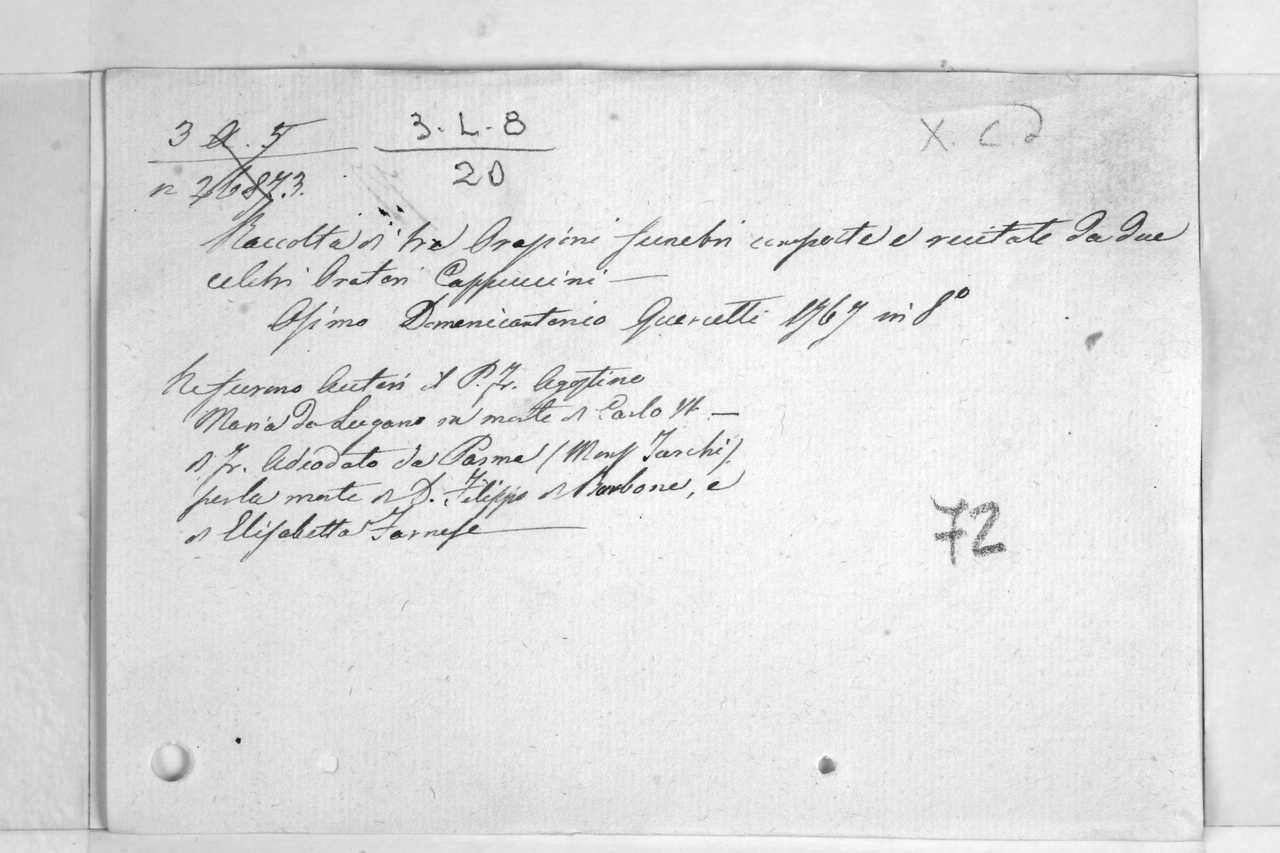 3 A. 5
3. L. 8
X. C. 2
n 26873.
20
Raccolta di tre Orazioni funebri composte e recitate da due
celebri Oratori Cappuccini —
Osimo Domenicantonio Quercetti 1767 in 8º
Ne furono Autori il P. Fr. Agostino
Maria da Lugano in morte di Carlo VI —
di Fr. Adeodato da Parma (Monsr Turchi)
per la morte di D. Filippo di Borbone, e
di Elisabetta Farnese
72